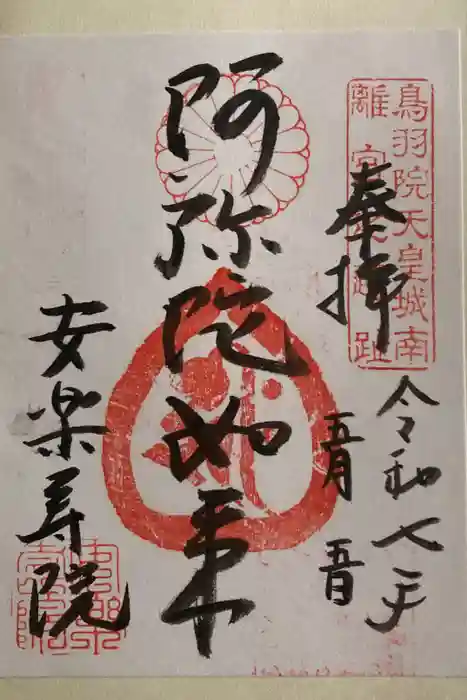 鳥羽院天皇城南
離宮
趾
奉拝
令和七年
五月五日
阿弥陀如来
安楽寿院
安樂
壽院